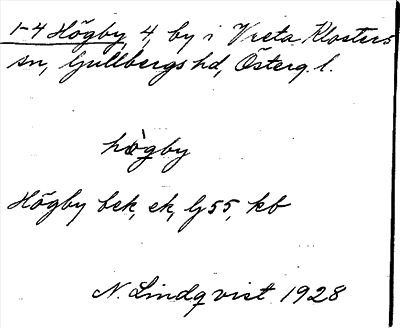 1-4 Högby, 4, by i Vreta Klosters
sn, Gullbergs hd, Österg. l.
hö̀gby
Högby bek, ek, G 55, kb
N. Lindqvist 1928